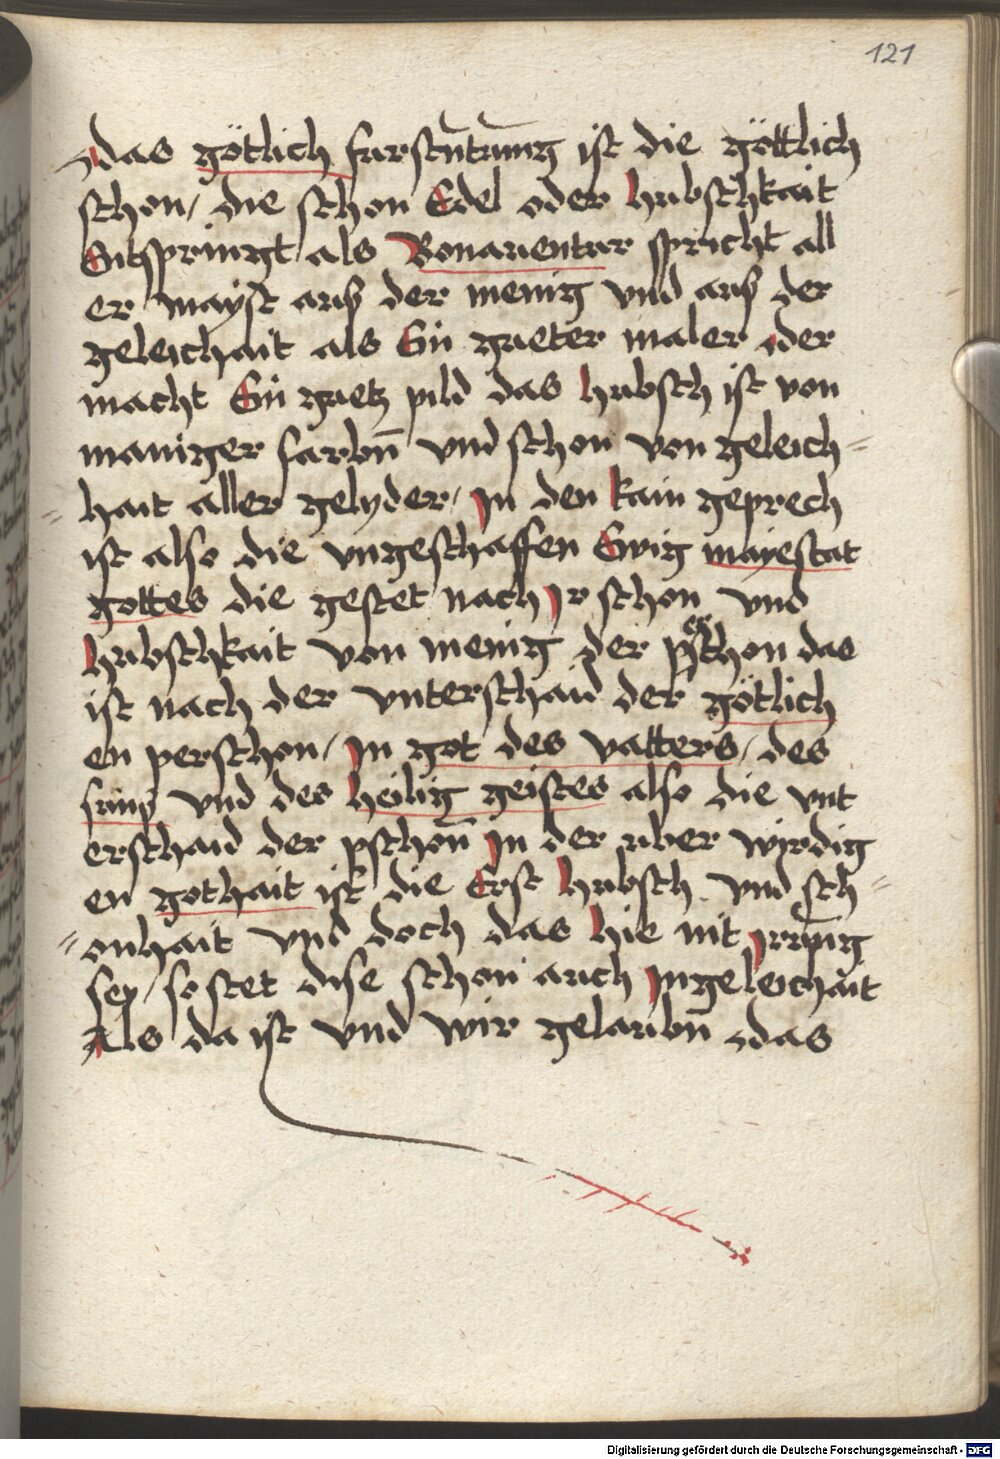 121
das götlich furstn̄tūng ist die göttlich
schon / die schon Edel oder hubschkait
Entspringt als Bonauentur spricht all
er mayst auß der menig vnd auß der
geleichait als Ein gueter maler oder
macht Ein guetz pild das hubsch ist von
maniger farbn̄ vnd schon von geleich=
hait aller gelyder / In den kain geprech
ist also die vngeschaffen Ewig mayestat
gottes die gestet nach Ir schon vnd
hubschkait von menig der perschon das
ist nach der vnterschaid der götlich
en perschon / In got des vatters / des
suns vnd des heilig geistes also die vnt
erschaid der pschon̄ In der uber wirdig
en gothait ist die Erst hubsch vnd sch=
onhait vnd doch das hie nit Irrūng
sey / so stet dise schon auch Ingeleichait
Als da ist vnd wir gelaubn̄ das
Digitalisierung gefördert durch die Deutsche Forschungsgemeinschaft - DFG